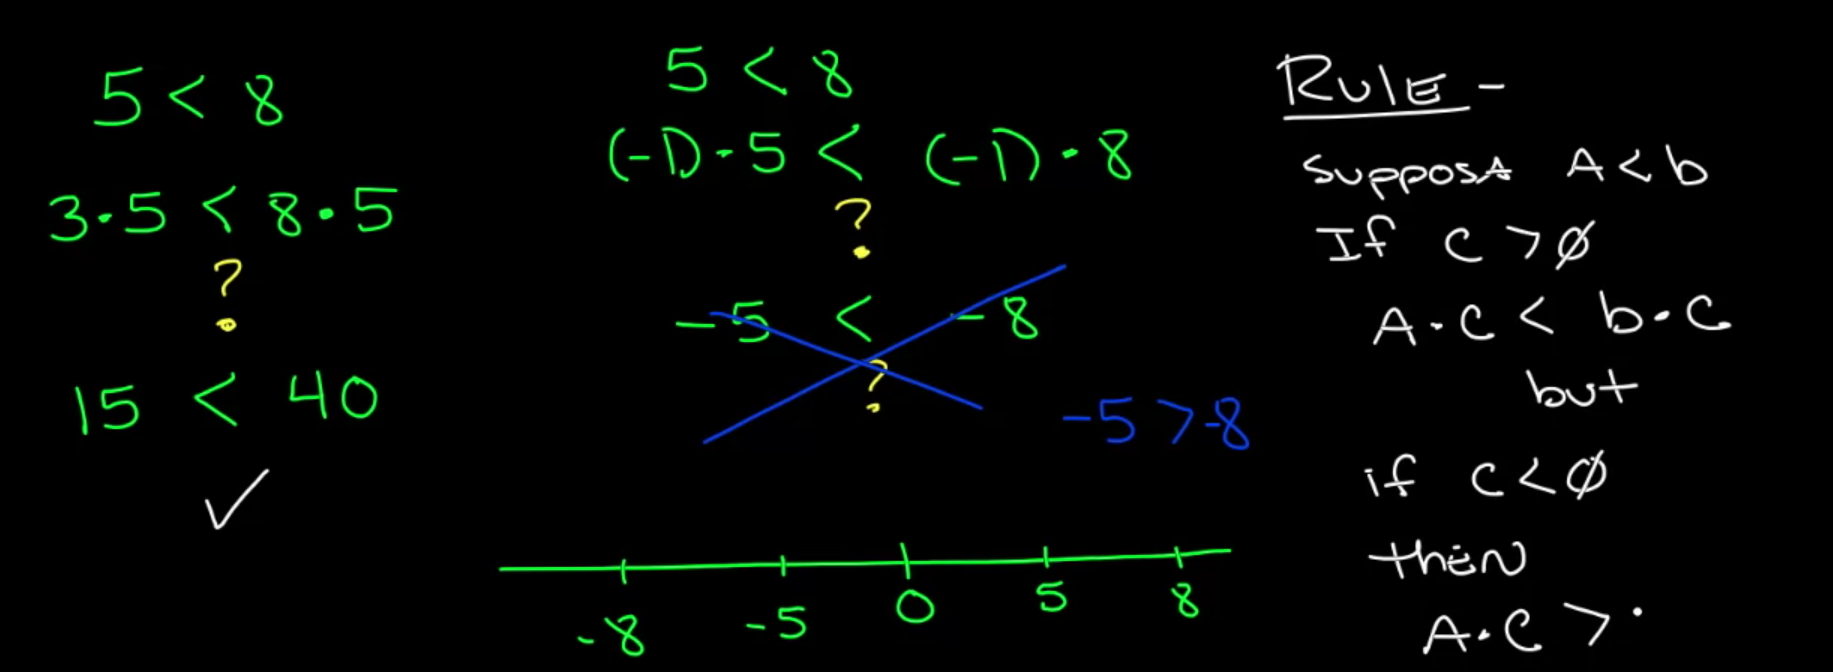 5 < 8
3·5 < 8·5
?
15 < 40
✓
5 < 8
(-1)·5 < (-1)·8
?
-5 < -8
?
-5 > -8
-8 -5 0 5 8
RULE -
Suppose A < b
If C > ∅
A·C < b·C
but
if C < ∅
then
A·C >